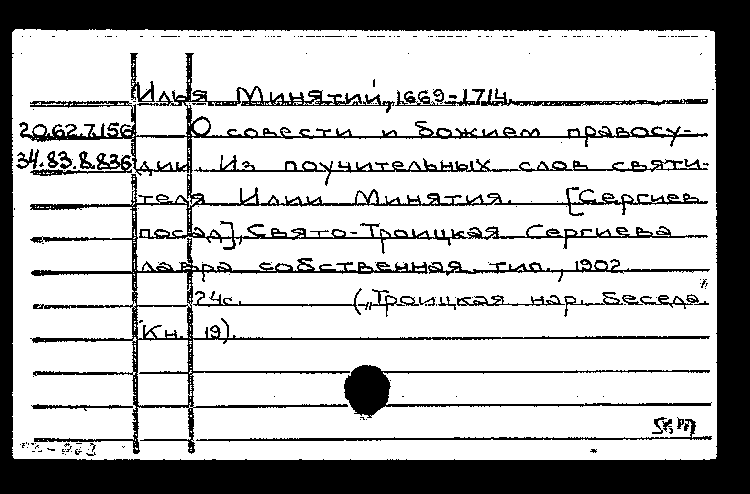 Илья Минятий, 1669-1714
20.62.7.156 О совести и божием правосу-
34.83.8.836 дии. Из поучительных слов святи-
теля Илии Минятия. [Сергиев
посад], Свято-Троицкая Сергиева
лавра собственная тип., 1902
24с. („Троицкая нар. беседа."
Кн. 19).